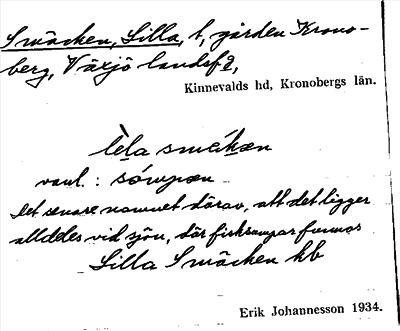 Smäcken, Lilla, t, gården Krono-
berg, Växjö landsf.,
Kinnevalds hd, Kronobergs län.
lèla smékæn
vanl. : sómpæn
Det senare namnet därav, att det ligger
alldeles vid sjön, där fisksumpar funnos
Lilla Smäcken kb
Erik Johannesson 1934.